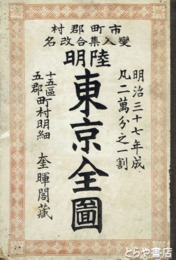 市町郡村
變入集合改名
明治三十七年成
凡二萬分之一割
明陸
東京全圖
十五區
五郡町村明細
奎暉閣藏
とらや書店